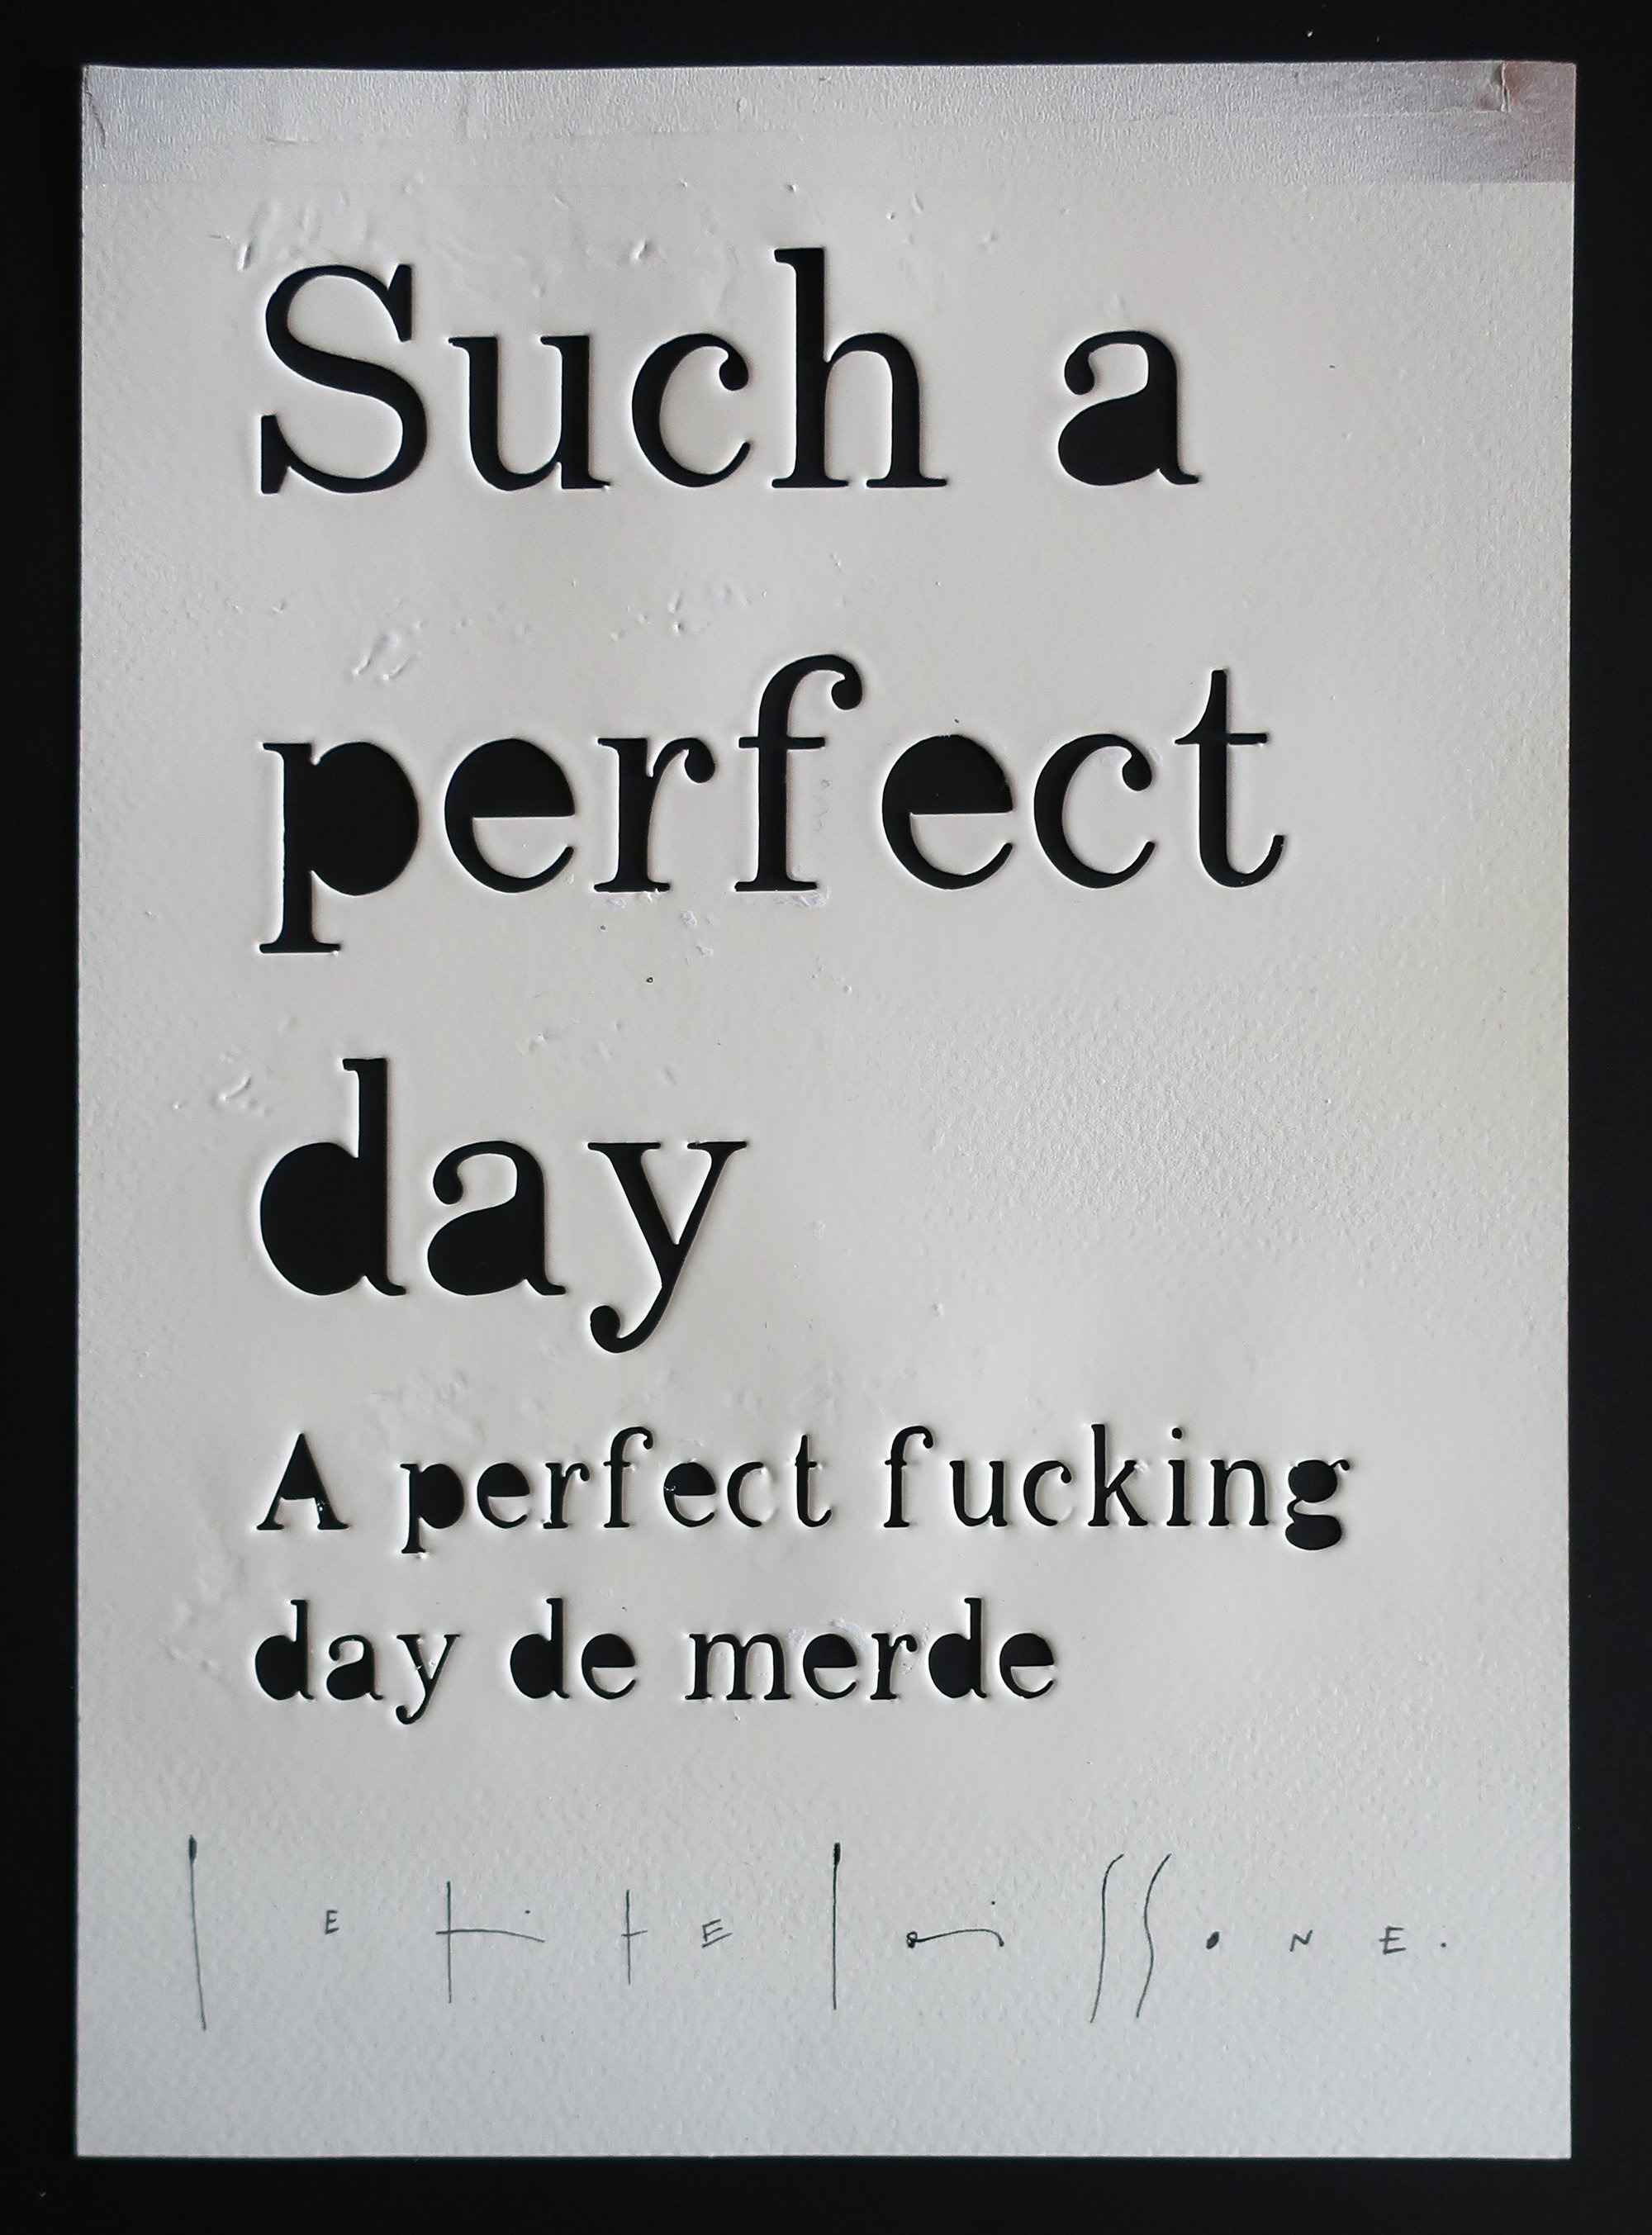 Such a
perfect
day
A perfect fucking
day de merde
PETITE POISSONE.